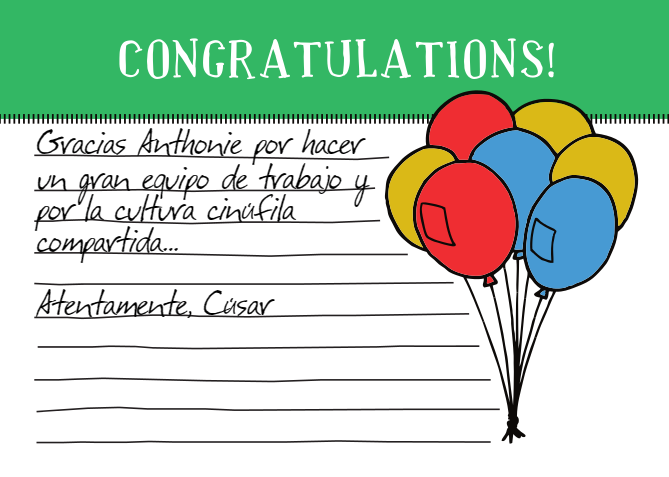 CONGRATULATIONS!
Gracias Anthonie por hacer
un gran equipo de trabajo y
por la cultura cinúfila
compartida...
Atentamente, Cúsar